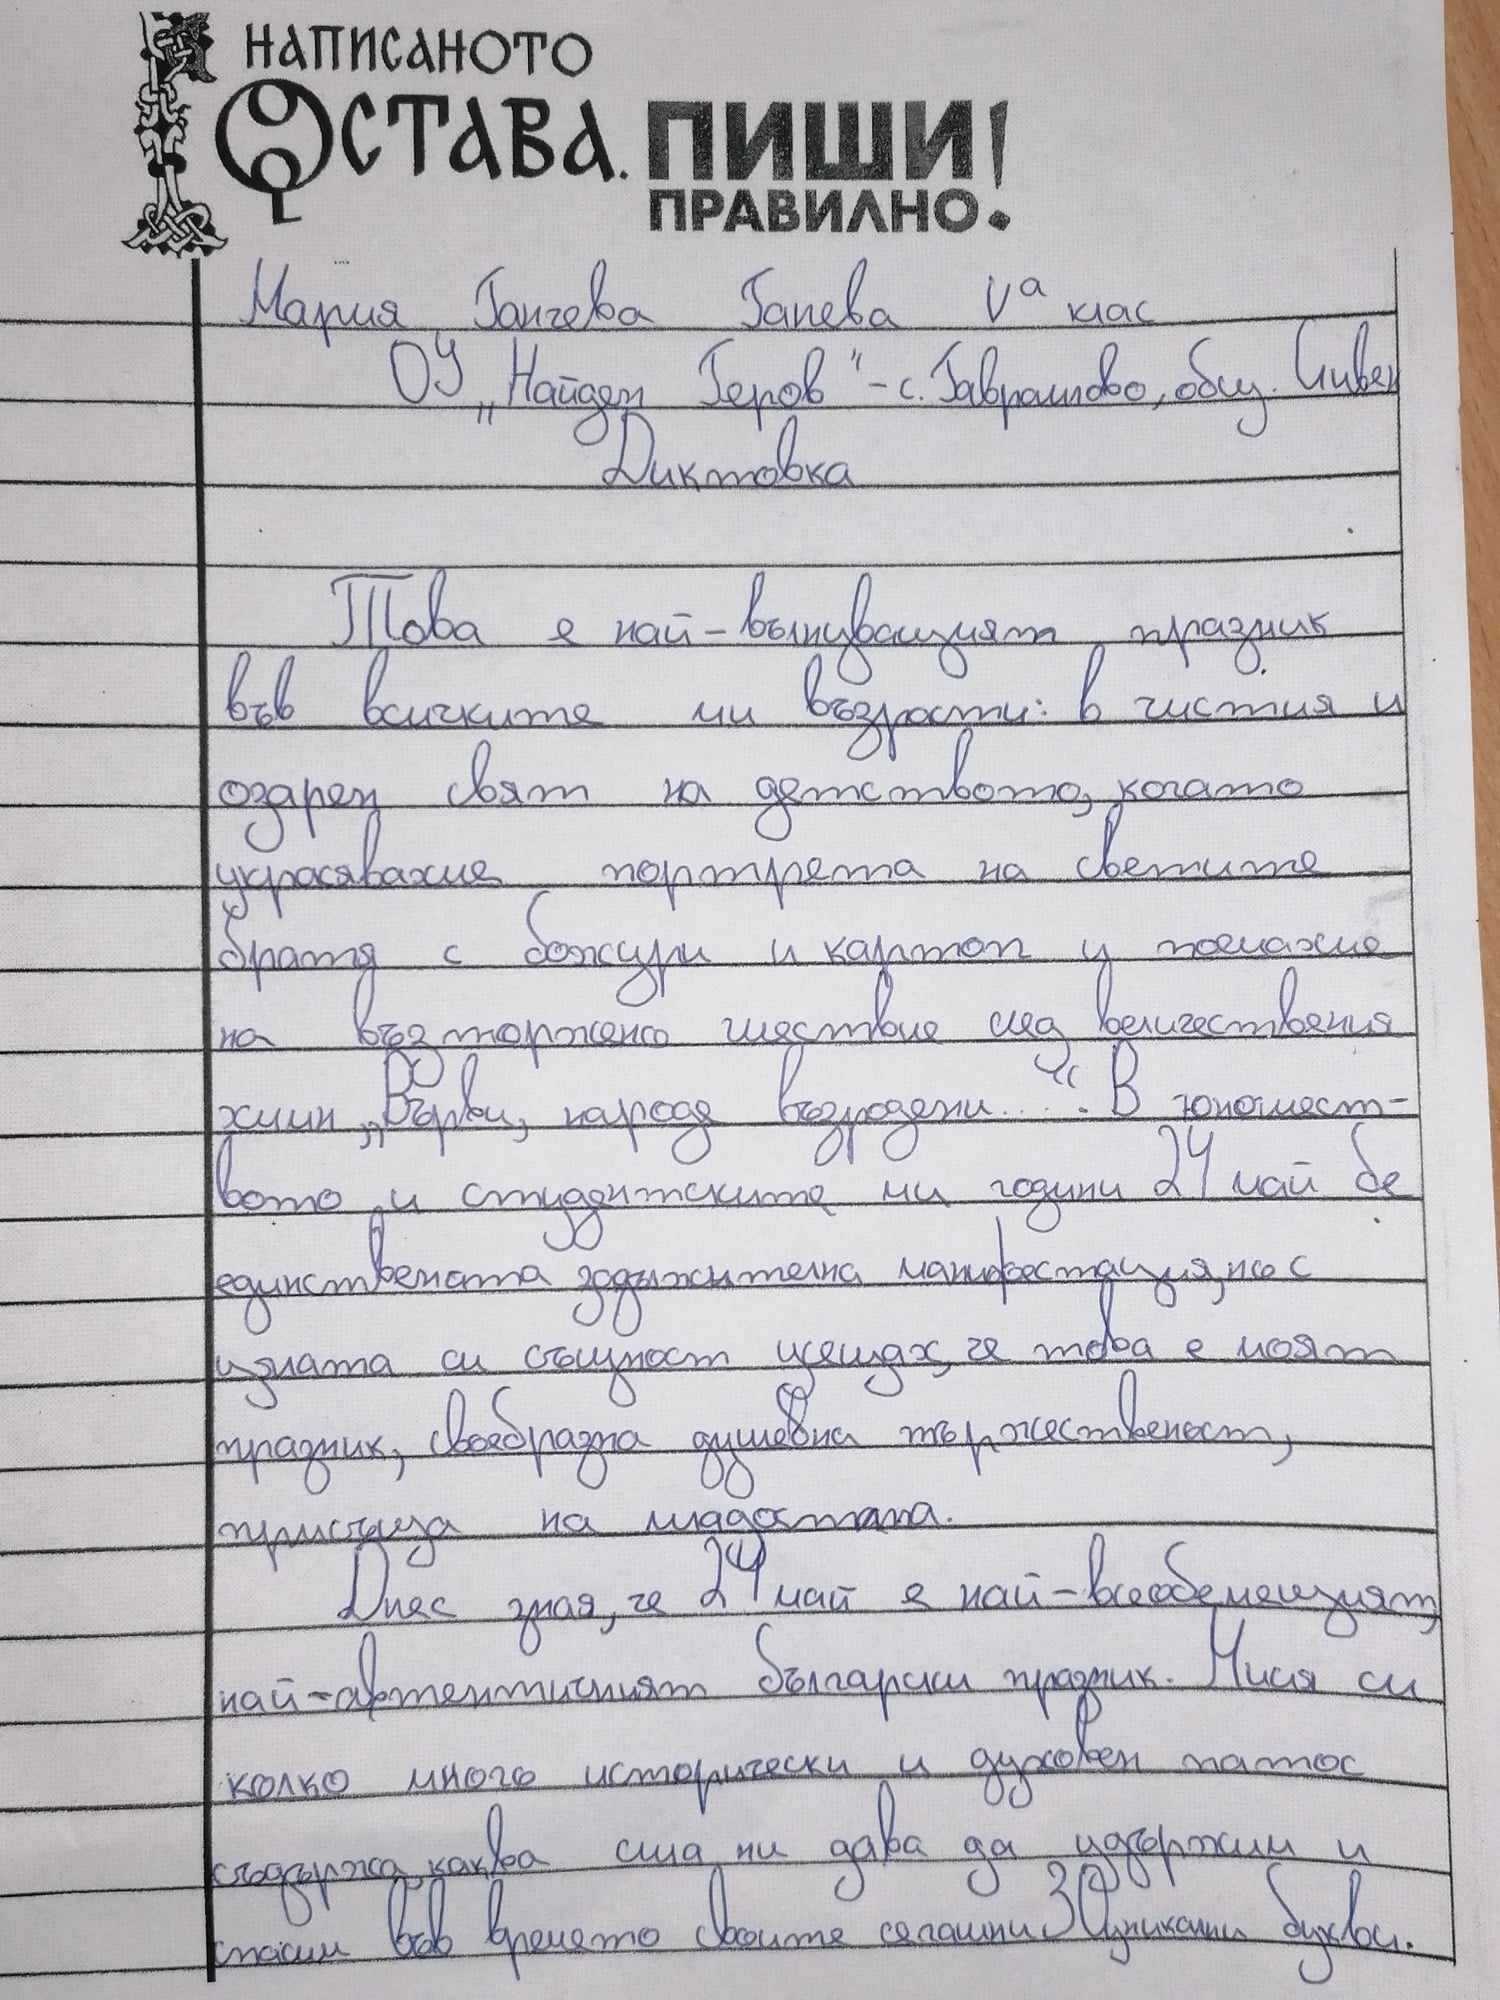 НАПИСАНОТО
ОСТАВА. ПИШИ
ПРАВИЛНО!
Мария Ганчева Ганева Vа клас
ОУ „Найден Геров" - с. Гавраилово, общ. Сливен
Диктовка
Това е най-вълнуващият празник
във всичките ми възрасти: в чистия и
озарен свят на детството, когато
украсявахме портрета на светите
братя с божури и картон и поемахме
на възторжено шествие след величествения
химн „Върви, народе възродени...". В юношест-
вото и студентските ми години 24 май бе
единствената задължителна манифестация, но с
цялата си същност усещах, че това е моят
празник, своебразна душевна тържественост,
присъща на младостта.
Днес зная, че 24 май е най-всеобемещият,
най-автентичният български празник. Мисля си
колко много исторически и духовен патос
съдържа, каква сила ни дава да удържим и
спасим във времето своите сегашни 30 уникални букви.